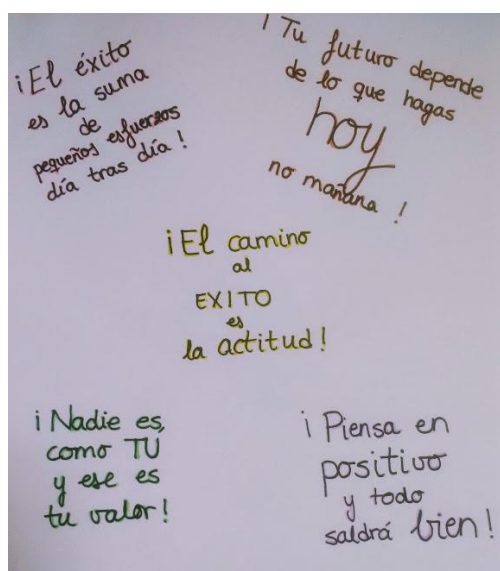 ¡El éxito
es la suma
de
pequeños esfuerzos
día tras día!
¡Tu futuro depende
de lo que hagas
hoy
no mañana!
¡El camino
al
EXITO
es
la actitud!
¡Nadie es,
como TU
y ese es
tu valor!
¡Piensa en
positivo
y todo
saldrá bien!